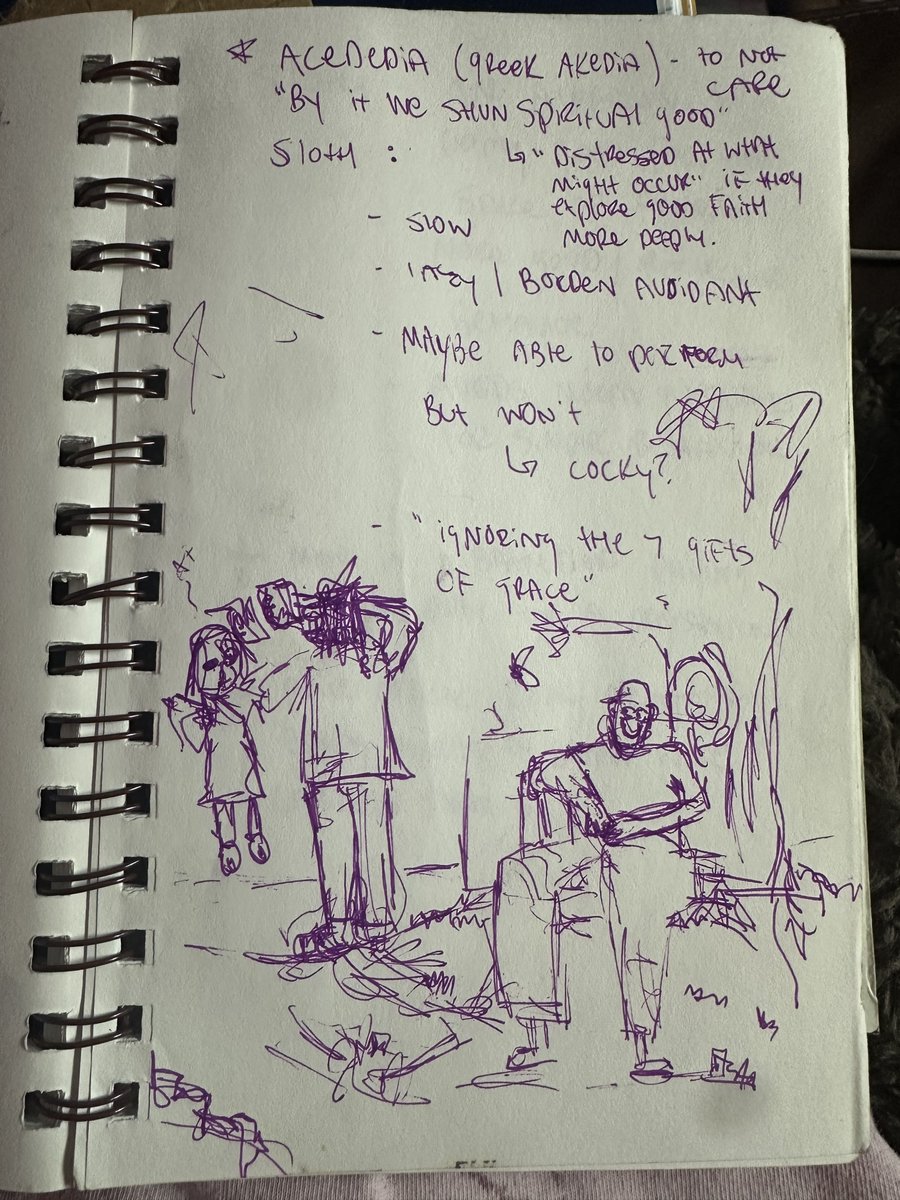 * ACEDEDIA (GREEK AKEDIA) - TO NOT CARE
"BY it WE SHUN SPIRITUAL gOOD"
↳ "DISTRESSED AT WHAT
MIGHT OCCUR" IF they
explore gOOD FAITH
MORE DEEPly.
SlOtH :
- SlOW
- lAzy / BORDEN AVOIDANt
- MAyBE ABlE to PERFORM
BUt WON't
↳ COCKy?
- "igNORING tHE 7 gIFtS
OF gRACE"